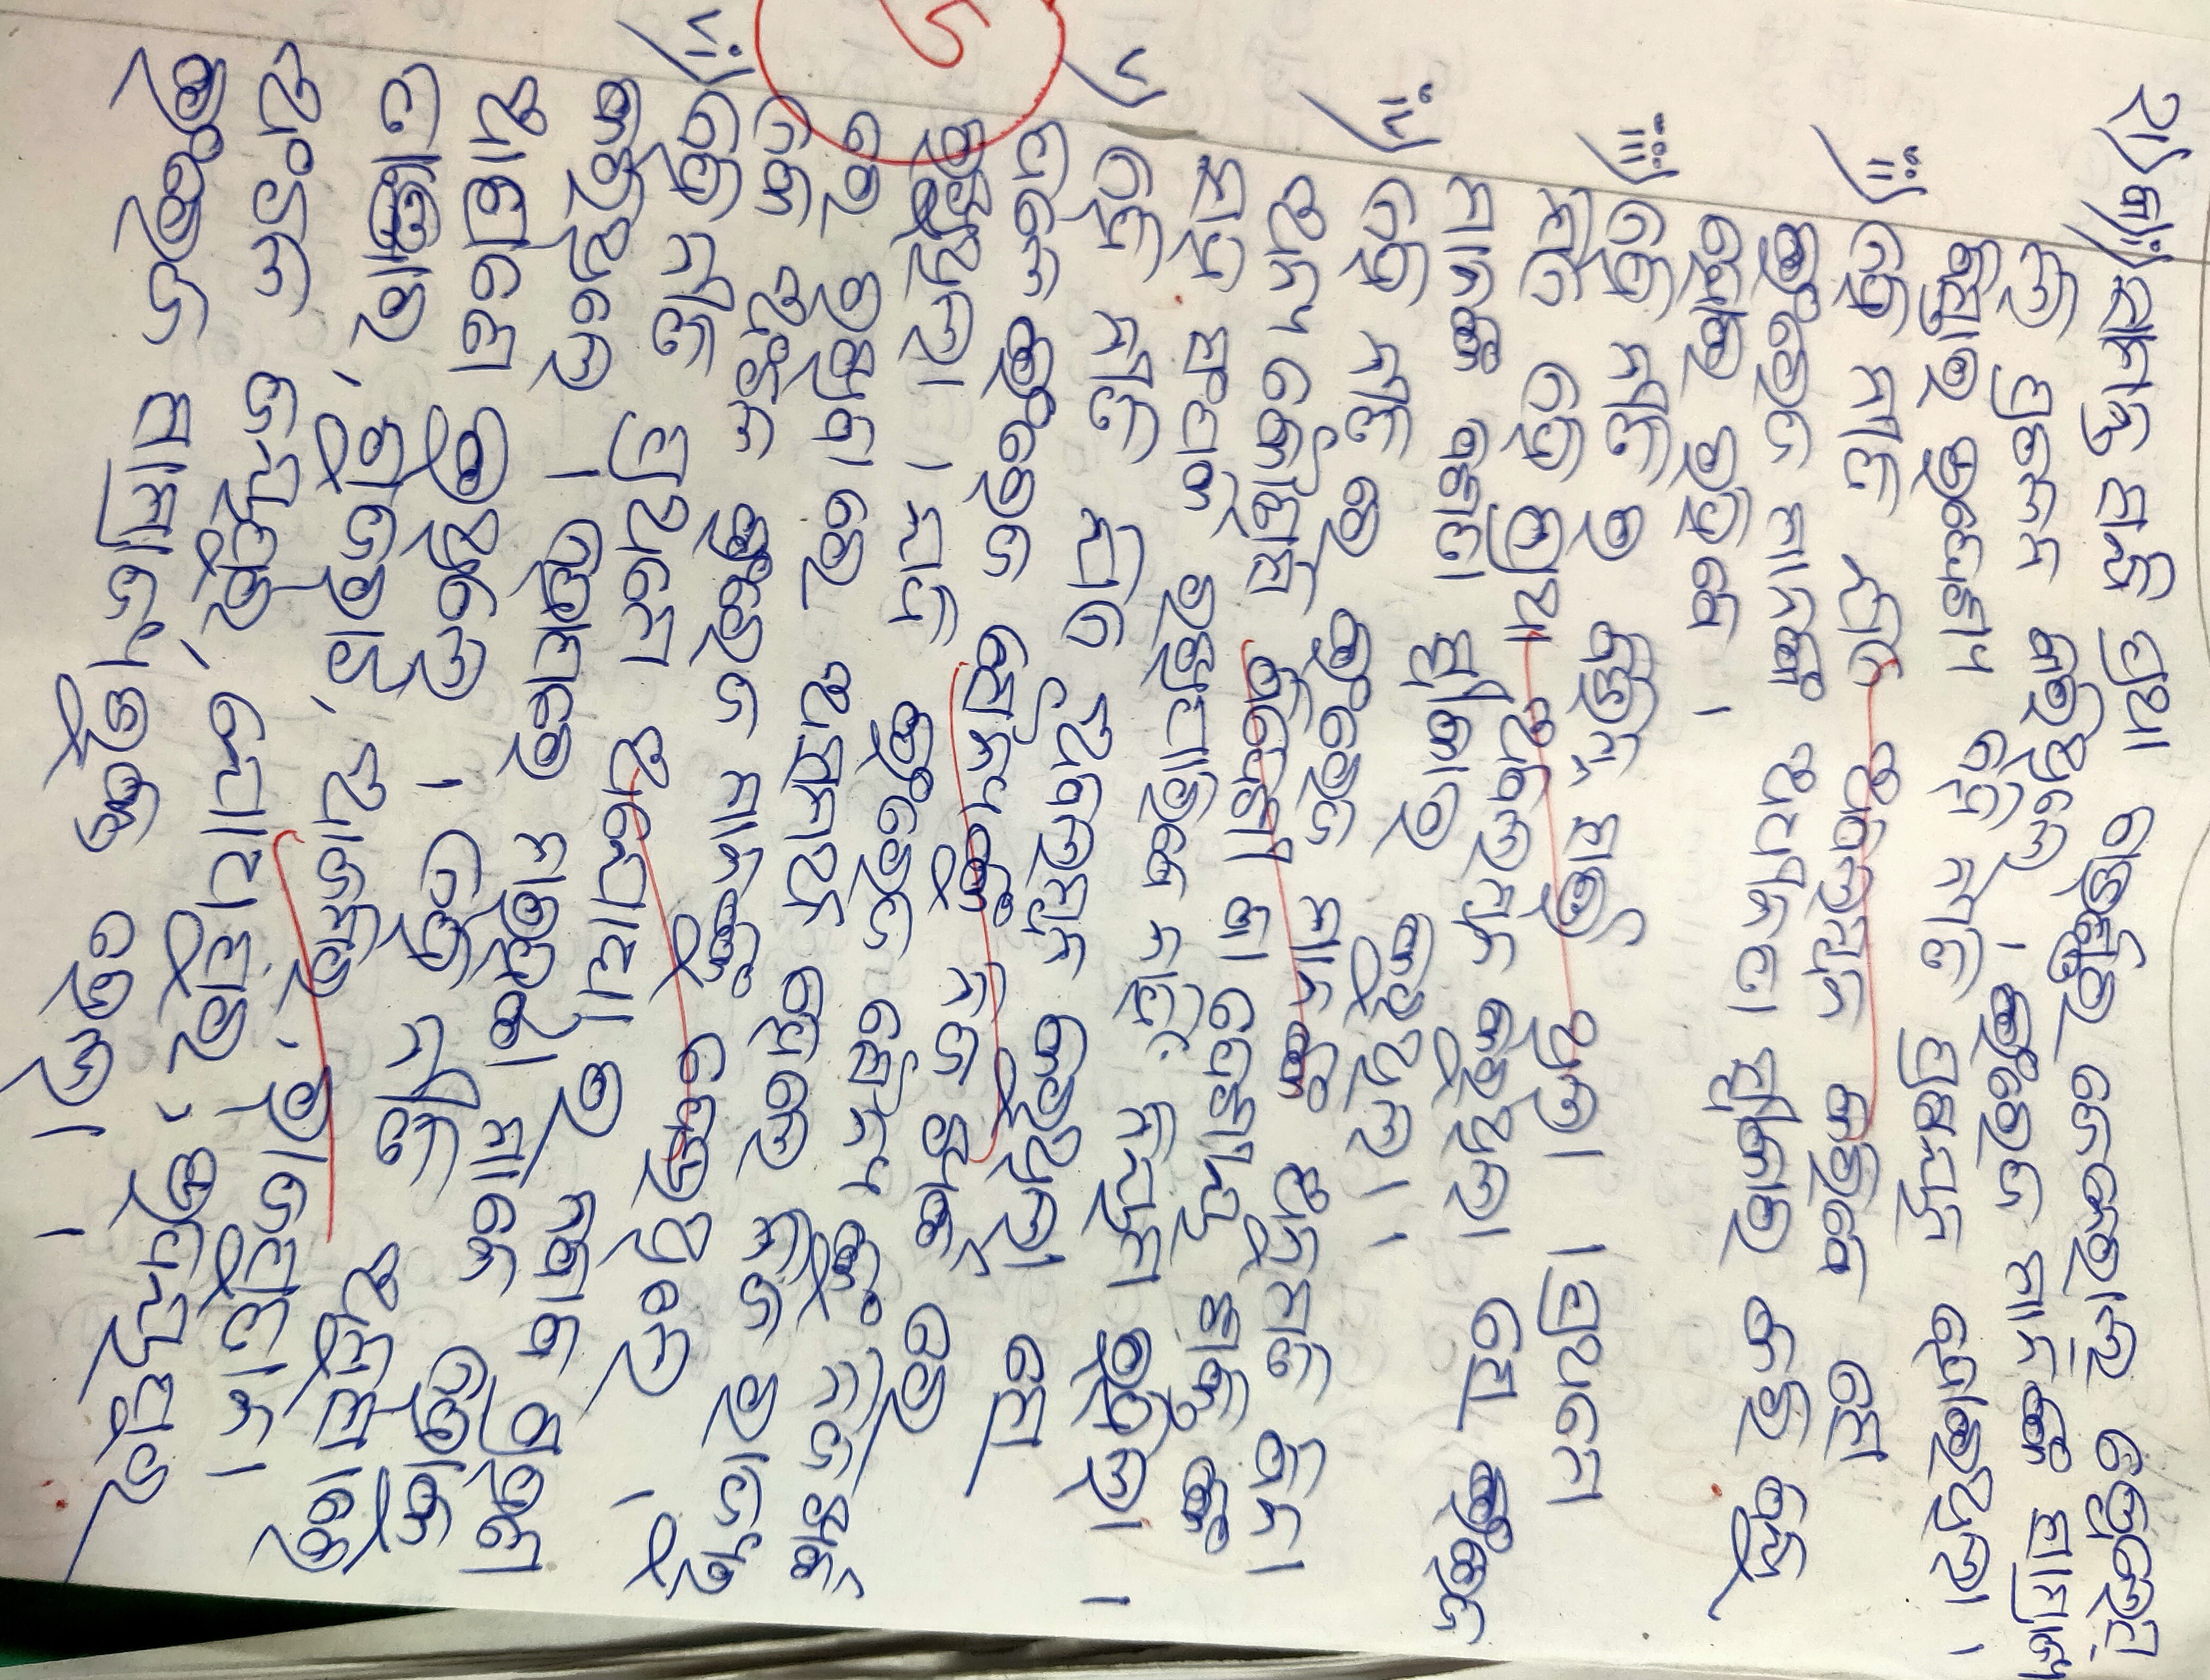 ୨।) କ) i) ସାମନ୍ତ ସନ୍ଧି ପ୍ରଥା ଗଭର୍ଣ୍ଣର ଜେନେରାଲ୍ ୱେଲେସ୍
ଲି ପ୍ରଚଳନ କରିଥିଲେ । ଇଂରେଜ ମାନଙ୍କ ସାମ୍ରାଜ୍ୟ
ବିସ୍ତାର ଉଦ୍ଦେଶ୍ୟ ଏହି ନୀତି ପ୍ରଣୟନ ହୋଇଥିଲା ।
ii) ଏହି ନୀତି ଯିଏ ଅବଲମ୍ବନ କରିବେ ସେ
ଇଂରେଜ ମାନଙ୍କ ଅଧୀନତା ସ୍ୱୀକାର କରି ବନ୍ଧୁ
ହୋଇ ରହିବେ ।
iii) ଏହି ନୀତି ର ବିଭିନ୍ନ ସର୍ତ୍ତ ଥିଲା । ପ୍ରଥମେ
ଯିଏ ଏହି ପ୍ରଥା ଅବଲମ୍ବନ କରୁଥିଲା ସେ ଇଂରେଜ
ମାନଙ୍କ ବଶତା ସ୍ୱୀକାର କରୁଥିଲା ।
iv) ଏହି ନୀତି ରେ ଇଂରେଜ ମାନଙ୍କ ଅନୁମତି ବିନା
ଅନ୍ୟ କୌଣସି ବିଦେଶୀ ବା ଦେଶୀୟ ଶକ୍ତି ଙ୍କ
ସହି ସଂପର୍କ ରଖିପାରିବେ ନାହିଁ ନିୟମ ରହିଲା ।
v) ଏହି ନୀତି ଯିଏ ଅବଲମ୍ବନ କରୁଥିଲା ସେ
ଦଳେ ଇଂରେଜ ସୈନ୍ୟଙ୍କୁ ନିଜ ଖର୍ଚ୍ଚ ରେ
ରଖୁଥିଲା । ଯଦି ଇଂରେଜ ସୈନ୍ୟ ଙ୍କୁ ନିଜ ଖର୍ଚ୍ଚ
ରେ ରଖିବା ରେ ଅସମର୍ଥ ହେଲେ ନିଜ ରାଜ୍ୟରୁ
ଏକ ଅଂଚଳ ଇଂରେଜ ମାନଙ୍କୁ ଦେଉଥିଲେ ।
vi) ଏହି ନୀତି ପ୍ରଥମେ ଅଯୋଧ୍ୟା ର ନବାବ ଗ୍ରହଣ
କରିଥିଲେ । ଏହାପରେ ମରହଟ୍ଟା ମାନେ ଏହାକୁ
ଆପଣେ ଇଥିଲେ । ଏହି ନୀତି ଅନୁସାରେ
ତାଞ୍ଜୋର, ଗୁଜରାଟ, ଆଜମିର, ରାଜପୁତାନା
ଅଂଚଳ ଜୟପୁର, ଯୋଧପୁର, ଉଦୟପୁର
ଇଂରେଜ ସାମ୍ରାଜ୍ୟଭୁକ୍ତ ହେଲା ।
5